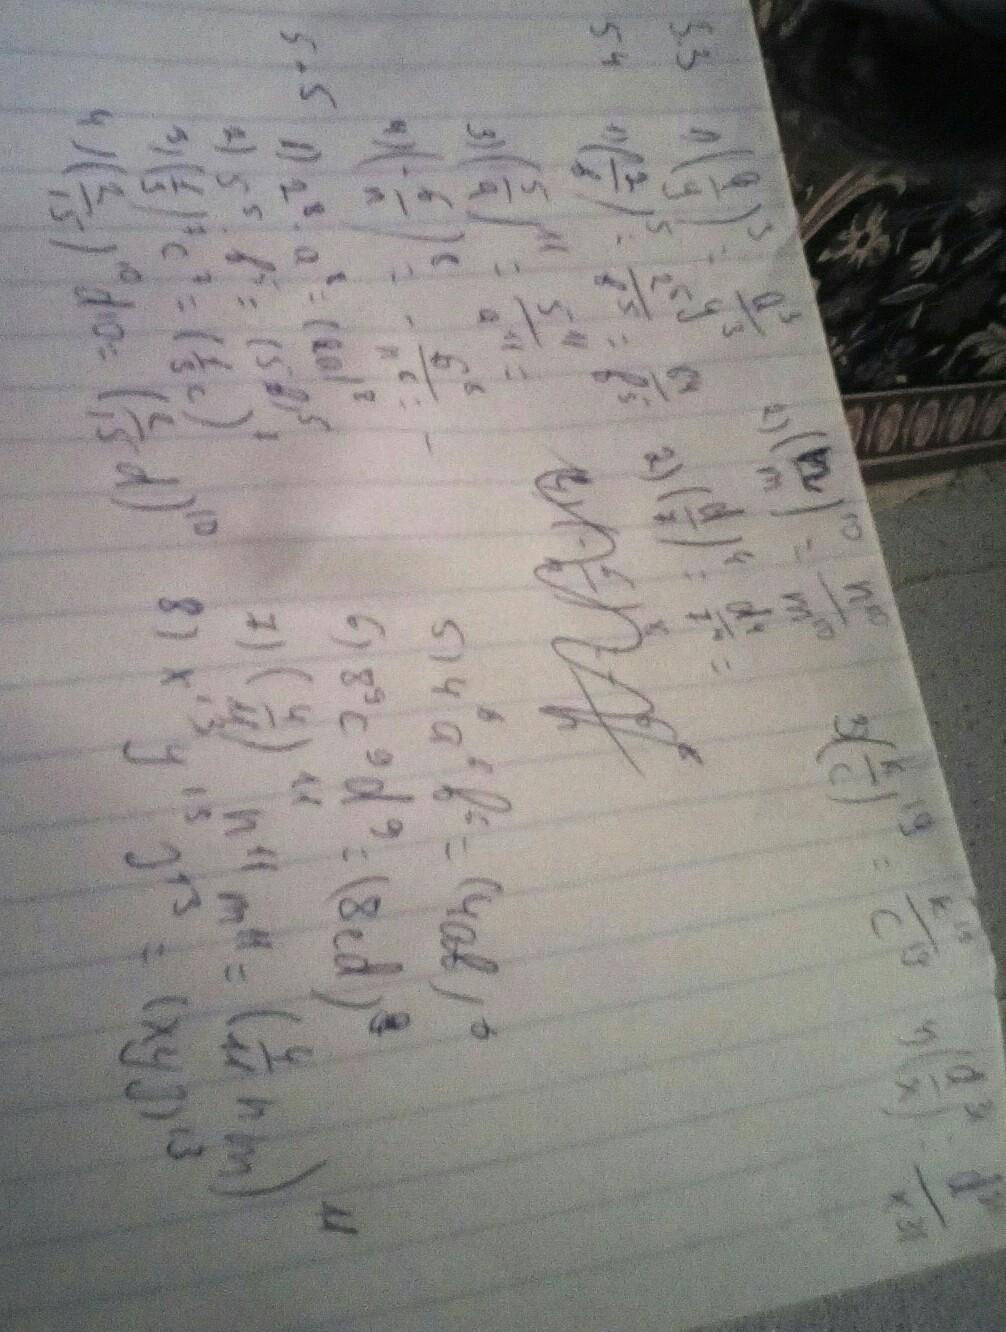 5.3 1) (a/y)³ = a³/y³ 2) (n/m)¹⁰ = n¹⁰/m¹⁰ 3) (k/c)¹⁹ = k¹⁹/c¹⁹ 4) (d/x)³¹ = d³¹/x³¹
5.4 1) (2/b)⁵ = 2⁵/b⁵ = /b⁵ 2) (d/7)⁴ = d⁴/7⁴ =
3) (5/a)¹¹ = 5¹¹/a¹¹ =
4) (-6/n)⁶ = - 6⁶/n⁶ = -
5.5 1) 2⁸·a⁸ = (2a)⁸ 5) 4⁶a⁶b⁶ = (4ab)⁶
2) 5⁵·b⁵ = (5b)⁵ 6) 8⁹c⁹d⁹ = (8cd)⁹
3) (1/3)⁷c⁷ = (1/3 c)⁷ 7) (4/11)¹¹ n¹¹ m¹¹ = (4/11 nm)¹¹
4) (2/15)¹⁰ d¹⁰ = (2/15 d)¹⁰ 8) x¹³ y¹³ z¹³ = (xyz)¹³